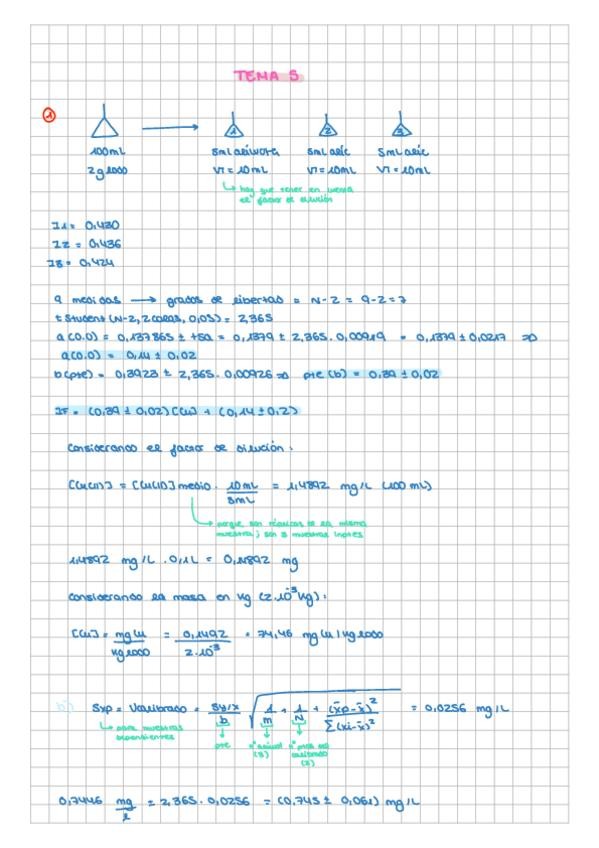 TEMA 5
1
100mL
2g lodo
5mL alícuota
VT = 10mL
1
5mL alíc
VT = 10mL
2
5mL alíc
VT = 10mL
3
hay que tener en cuenta
el factor de dilución
I1 = 0,430
I2 = 0,436
I3 = 0,424
9 medidas → grados de libertad = N-2 = 9-2=7
t Student (N-2, 2 colas, 0,05) = 2,365
a(0.0) = 0,137865 ± tsa = 0,1379 ± 2,365. 0,00919 = 0,1379 ± 0,0217 ⇒
a(0.0) = 0,14 ± 0,02
b(pte) = 0,3923 ± 2,365. 0,00926 ⇒ pte (b) = 0,39 ± 0,02
IF = (0,39 ± 0,02) C[Cu] + (0,14 ± 0,2)
Considerando el factor de dilución:
C[Cu(II)] = C[Cu(II)] medio . 10mL / 5mL = 1,4892 mg/L (100 mL)
porque son réplicas de la misma
muestra;
1,4892 mg/L . 0,1L = 0,14892 mg
Considerando la masa en kg (2.10⁻³kg):
C[Cu] = mg Cu / kg lodo = 0,1492 / 2.10⁻³ = 74,46 mg Cu / kg lodo
b') Sxp = Ucalibrado = Sy/x / b √ 1/m + 1/N + (x̄p-x̄)² / Σ(xi-x̄)² = 0,0256 mg/L
para muestras
pte
(3)
(3)
0,7446 mg/l ± 2,365. 0,0256 = (0,745 ± 0,061) mg/L